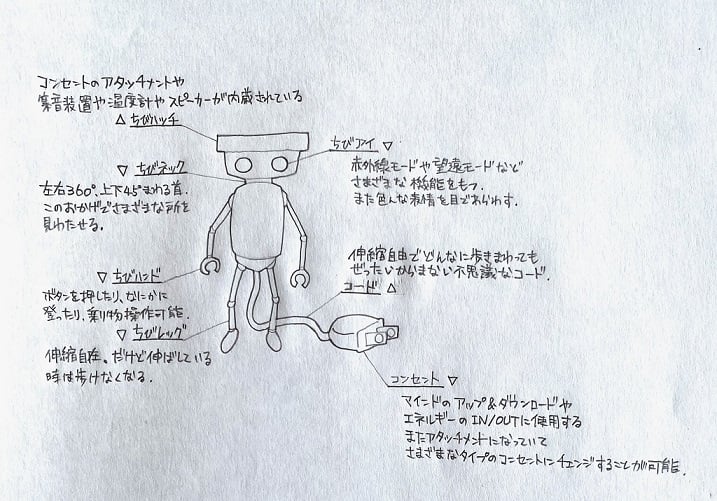 コンセントのアタッチメントや
集音装置や温度計やスピーカーが内蔵されている
△ ちびハッチ
ちびアイ ▽
赤外線モードや望遠モードなど
さまざまな機能をもつ.
また色んな表情を目であらわす.
▽ ちびネック
左右360°, 上下45°まわる首.
このおかげでさまざまな所を
見わたせる.
伸縮自由でどんなに歩きまわっても
ぜったいからまない不思議なコード.
コード △
▽ ちびハンド
ボタンを押したり, なにかに
登ったり, 乗り物操作可能.
▽ ちびレッグ
伸縮自在. だけど伸ばしている
時は歩けなくなる.
コンセント ▽
マインドのアップ&ダウンロードや
エネルギーのIN/OUTに使用する
またアタッチメントになっていて
さまざまなタイプのコンセントにチェンジすることが可能.